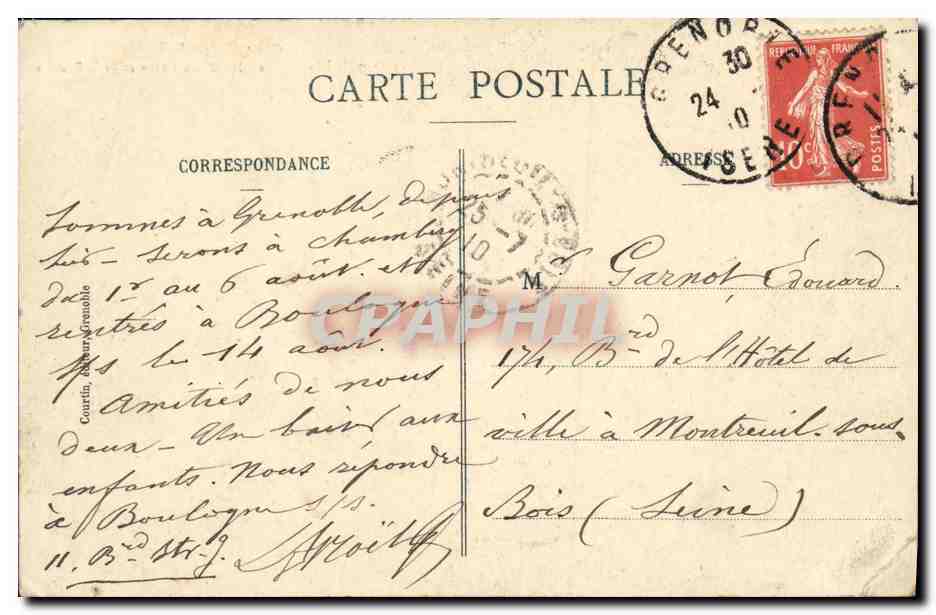 CARTE POSTALE
CORRESPONDANCE
ADRESSE
GRENOBLE
30
24
10
ISERE
REPUBLIQUE FRANÇAISE
10c
POSTES
Sommes à Grenoble, depuis
serons à Chambéry
du 1er au 6 août. et
rentrés à Boulogne
s/s le 14 août.
Amitiés de nous
deux - Un baiser aux
enfants. Nous répondre
à Boulogne s/s.
11. Brd Str-g.
M Garnot, Édouard.
174, Brd de l'Hôtel de
ville à Montreuil-sous-
Bois (Seine)
Courtin, éditeur, Grenoble
CPAPHIL